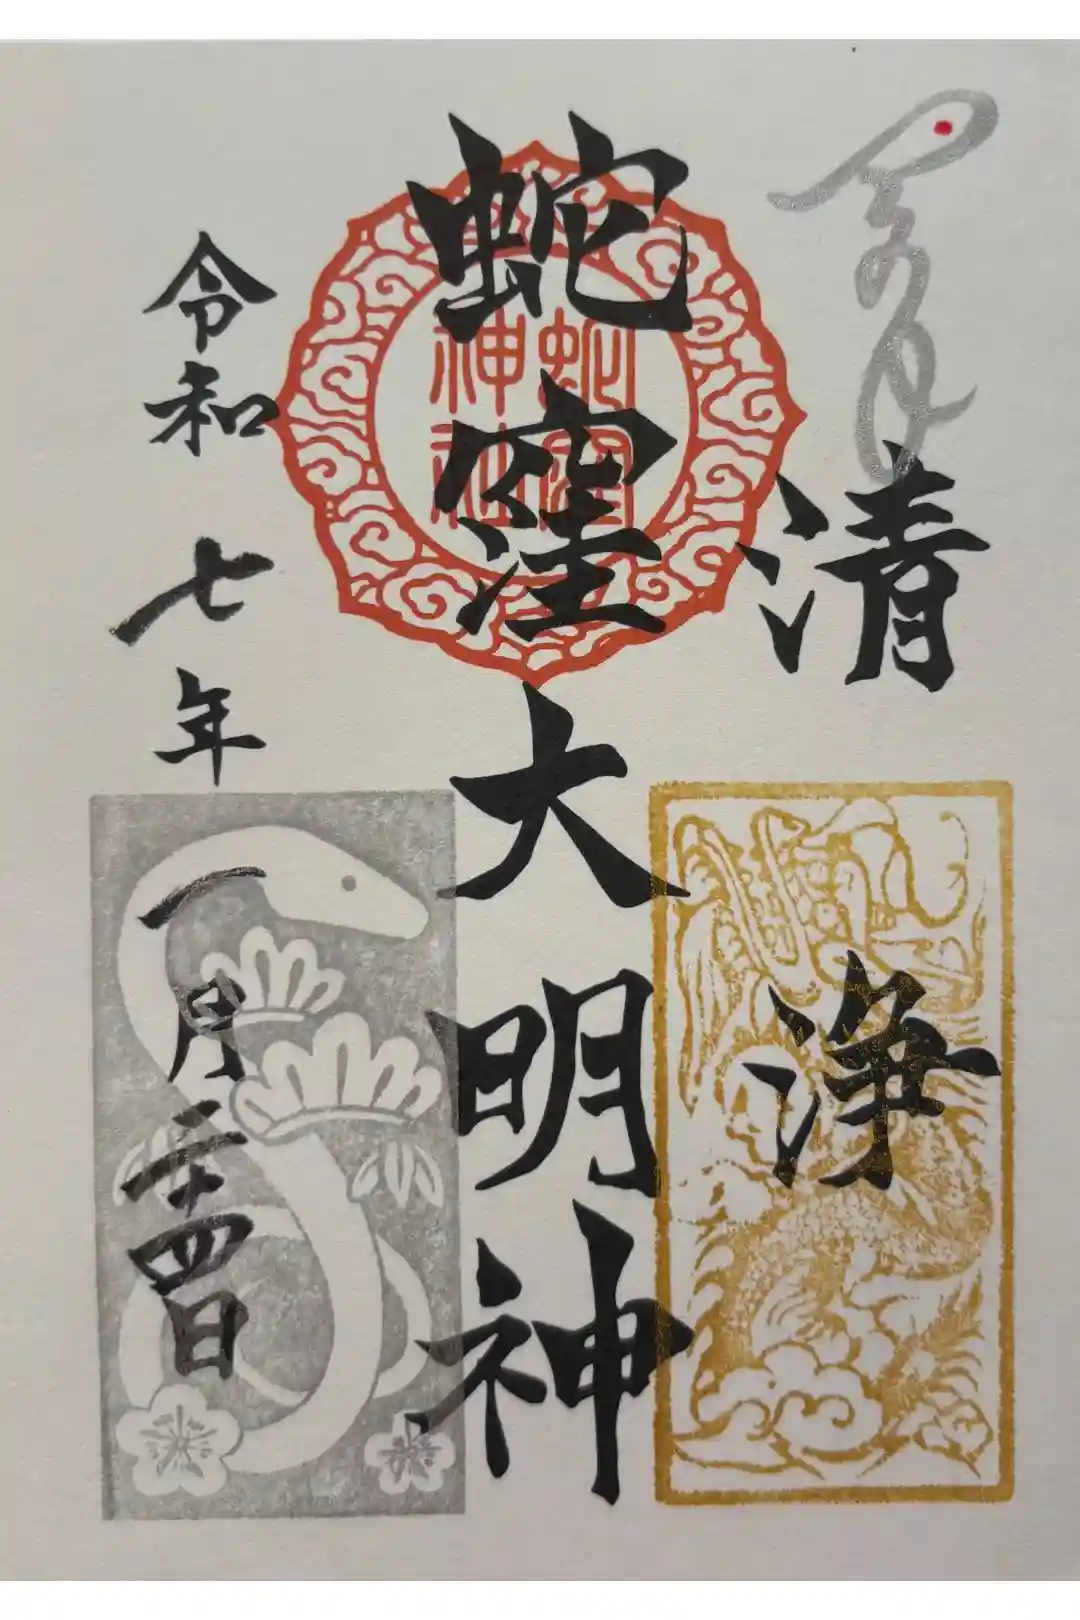 清浄
蛇窪大明神
蛇窪
神社
令和七年一月二十四日